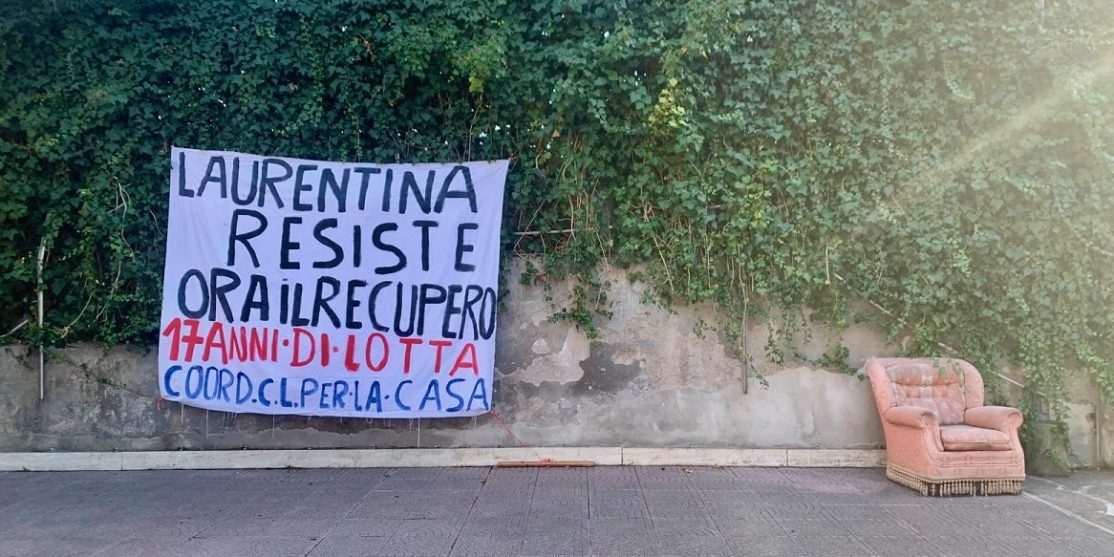 LAURENTINA
RESISTE
ORA iL RECUPERO
17 ANNI·DI·LOTTA
COORD.C.L.PER·LA·CASA